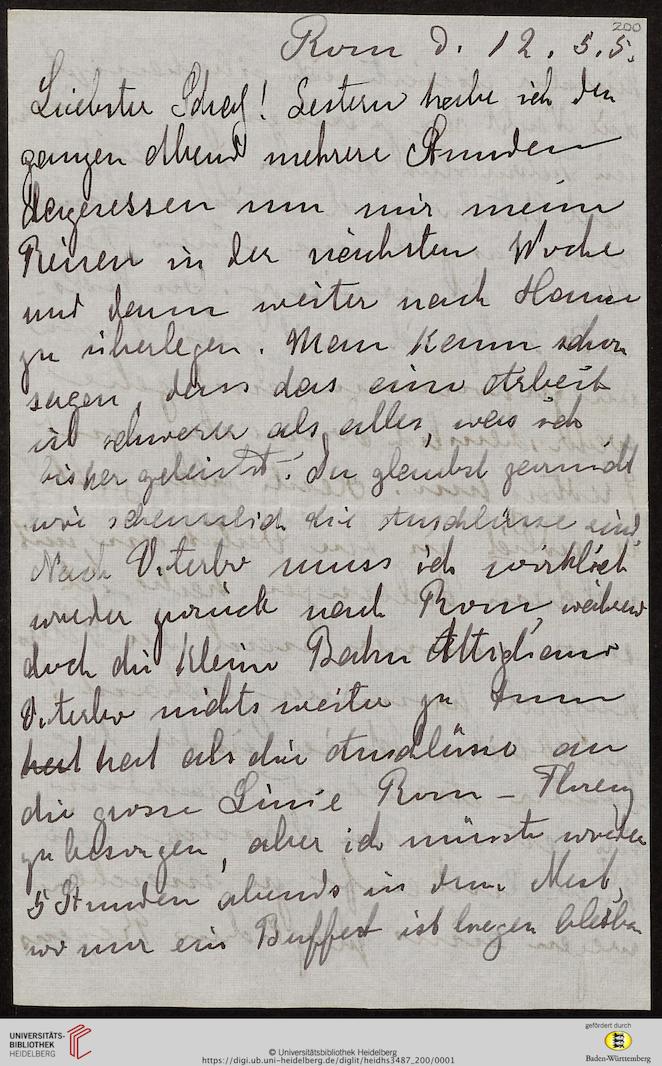 200
Rom d. 12. 5. 5.
Liebster Schatz! Gestern habe ich den
ganzen Abend mehrere Stunden
dagesessen um mir meine
Reisen in der nächsten Woche
und dann weiter nach Hause
zu überlegen. Man kann schon
sagen, dass das eine Arbeit
ist schwerer als alles, was ich
bisher geleistet. Du glaubst garnicht
wie scheusslich die Anschlüsse sind.
Nach Viterbo muss ich wirklich
wieder zurück nach Rom, während
doch die kleine Bahn Attigliano
Viterbo nichts weiter zu tun
hat hat als die Anschlüsse an
die grosse Linie Rom – Florenz
zu besorgen, aber ich müsste wieder
5 Stunden abends in dem Nest,
wo nur ein Buffet ist liegen bleiben
UNIVERSITÄTS-
BIBLIOTHEK
HEIDELBERG
© Universitätsbibliothek Heidelberg
https://digi.ub.uni-heidelberg.de/diglit/heidhs3487_200/0001
gefördert durch
Baden-Württemberg